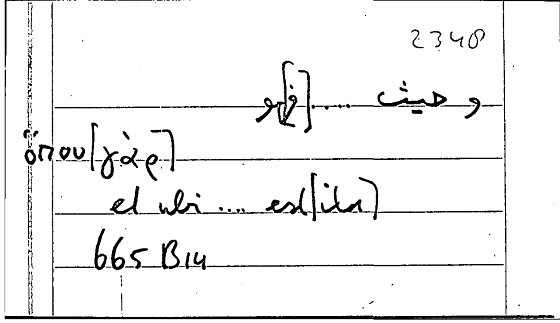 2348
و حيث .... [ف]هو
ὅπου [γὰρ]
et ubi .... est [ita]
665 B14